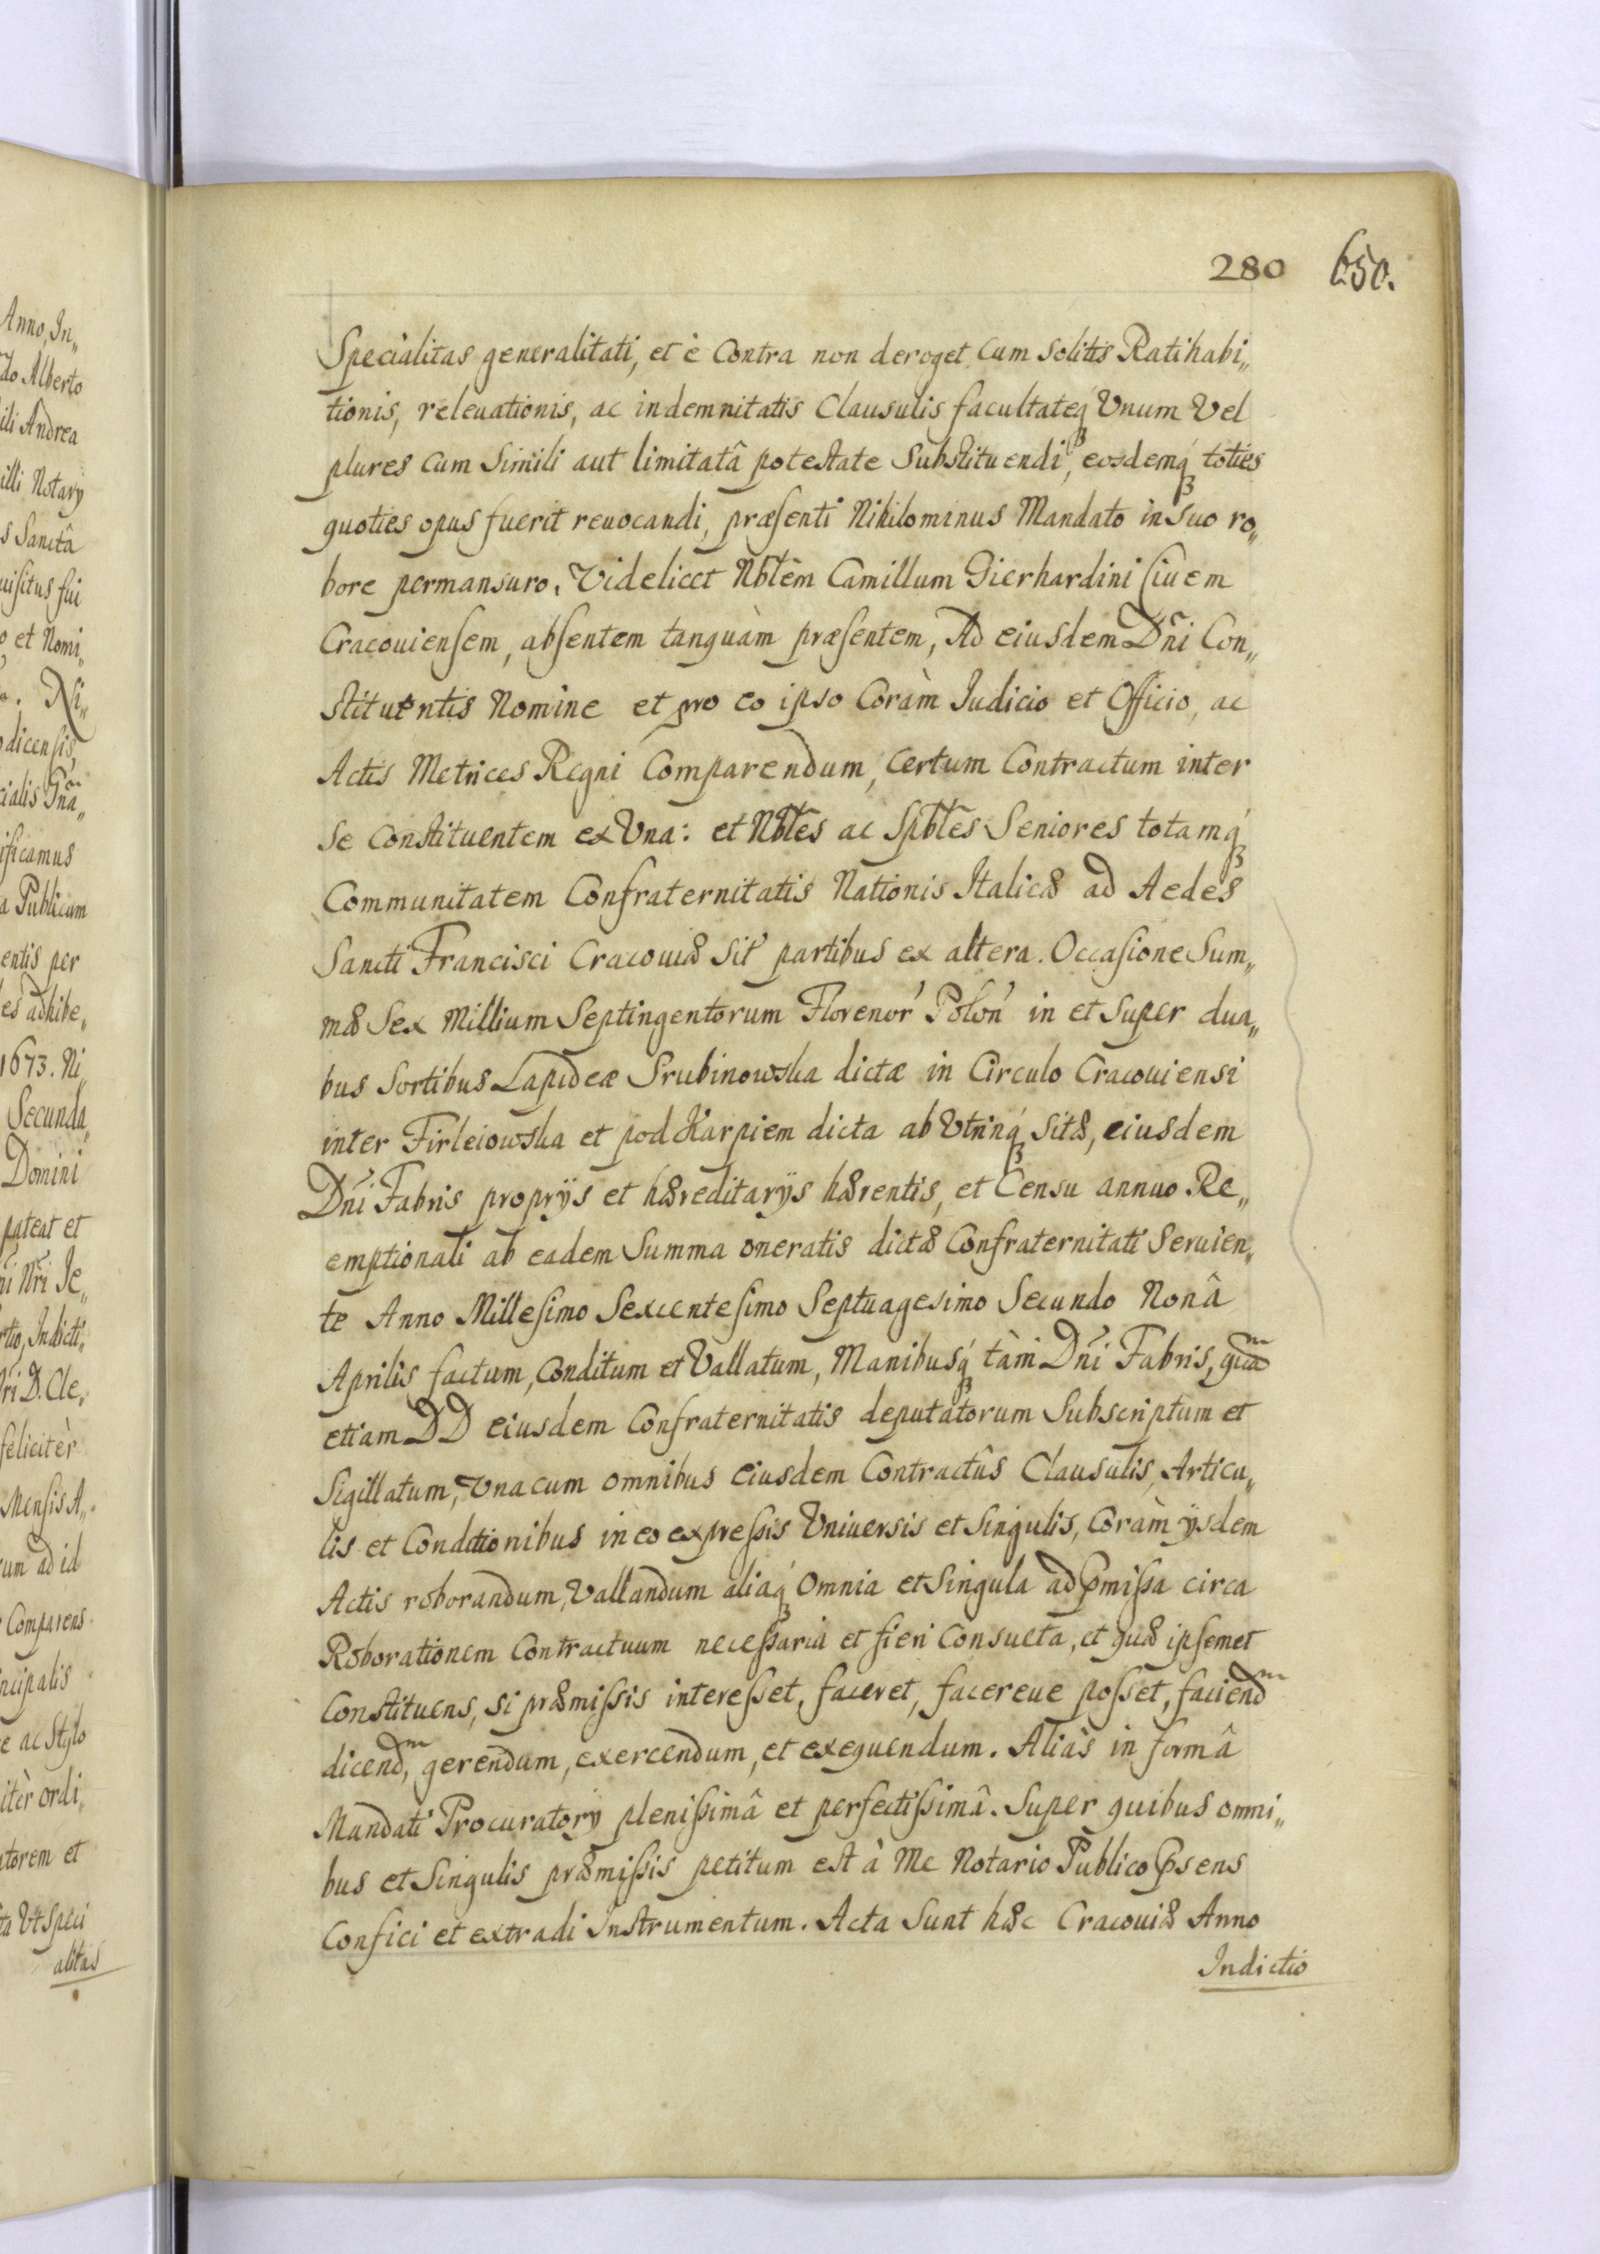 280 650.
Specialitas generalitati, et è Contra non deroget. Cum Solitis Ratihabi„
tionis, releuationis, ac indemnitatis Clausulis facultateq́ Vnum Vel
plures Cum Simili aut limitatâ potestate Substituendi, eosdemq́ toties
quoties opus fuerit reuocandi, præsenti Nihilominus Mandato in Suo ro„
bore permansuro. Videlicet Nbtẽm Camillum Gierhardini Ciuem
Cracouiensem, absentem tanquàm præsentem, Ad eiusdem Dñi Con„
stituentis Nomine et pro eo ipso Coràm Judicio et Officio, ac
Actis Metrices Regni Comparendum, Certum Contractum inter
Se Constituentem ex Vna: et Nbtẽs ac Spbtẽs Seniores totamq́
Communitatem Confraternitatis Nationis Italicæ ad Aedes
Sancti Francisci Cracouiæ Sit' partibus ex altera. Occasione Sum„
mæ Sex Millium Septingentorum Florenor' Polon' in et Super dua„
bus Sortibus Lapideæ Srubinowska dictæ in Circulo Cracouiensi
inter Firleiowska et pod Karpiem dicta ab Vtrinq́ Sitæ, eiusdem
Dñi Fabris proprÿs et hæreditarÿs hærentis, et Censu annuo Re„
emptionali ab eadem Summa oneratis dictæ Confraternitati Seruien„
te Anno Millesimo Sexcentesimo Septuagesimo Secundo Nonâ
Aprilis factum, Conditum et Vallatum, Manibusq́ tàm Dñi Fabris, quam
etiam DD eiusdem Confraternitatis deputatorum Subscriptum et
Sigillatum, Vnacum omnibus eiusdem Contractûs Clausulis, Articu„
lis et Conditionibus in eo expressis Vniuersis et Singulis, Coràm ÿsdem
Actis roborandum, Vallandum aliaq́ Omnia et Singula ad pmissa circa
Roborationem Contractuum necessaria et fieri Consueta, et quæ ipsemet
Constituens, si præmissis interesset, faceret, facereue posset, faciendm
dicendm, gerendum, exercendum, et exequendum. Aliàs in formâ
Mandati Procuratorÿ plenissimâ et perfectissimâ. Super quibus omni„
bus et Singulis præmissis petitum est à Me Notario Publico psens
Confici et extradi Instrumentum. Acta Sunt hæc Cracouiæ Anno
Indictio
Anno, In„
do Alberto
ili Andrea
illi Notarÿ
s Sanctâ
uisitus fui
o et Nomi„
Ni„
dicensis,
cialis Gña„
ificamus
a Publicum
entis per
es adhibe„
1673. Ni„
Secunda,
Domini
pateat et
ni Nr̃i Je„
rtio, Indicti„
r̃i D. Cle„
felicitèr
Mensis A„
um ad id
Comparens
ncipalis
e ac Stylo
itèr ordi„
atorem et
ta Vt Speci
alitas